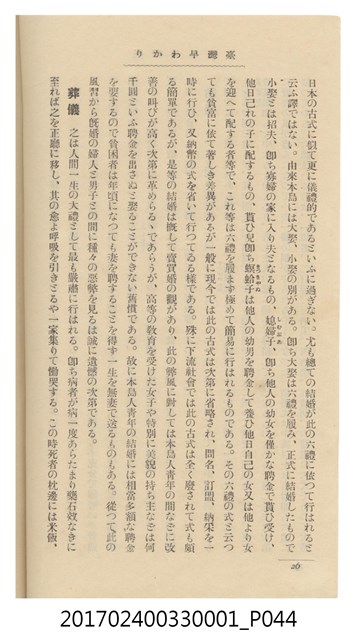 臺灣早わかり
日本の古式に似て更に儀禮的であるといふに過ぎない。尤も總ての結婚が此の六禮に依つて行はれると
云ふ譯ではない。由來本島には大娶、小娶の別がある。卽ち大娶は六禮を履み、正式に結婚したもので
小娶とは招夫、卽ち寡婦の家に入り夫となるもの、媳婦子、卽ち他人の幼女を僅かな聘金で貰ひ受け、
他日己れの子に配するもの、貰ひ兒卽ち螟蛉子は他人の幼男を聘金して養ひ他日自己の女又は他より女
を迎へて配する者等で、これ等は六禮を履まず極めて簡易に行はれるものである。その六禮の式と云つ
ても貧富に依て著しき差異があるが一般に現今では此の古式は次第に省略され、問名、訂盟、納采を一
時に行ひ、又納幣の式を省いて行つてゐる樣である。殊に下流社會では此の古式は全く廢されて式も頗
る簡單であるが、是等の結婚は槪して賣買婚の觀があり、此の弊風に對しては本島人靑年の間などに改
善の叫びが高く次第に革められるゝであらうが、高等の敎育を受けた女子や特別に美貌の持ち主などは何
千圓といふ聘金を出さぬと娶ることができない舊慣である。故に本島人靑年の結婚には相當多額な聘金
を要するので貧困者は年頃になつても妻を聘することを得ず一生を無妻で送るものもある。從つて此の
風習から旣婚の婦人と男子との間に種々の惡弊を見るは誠に遺憾の次第である。
葬儀 之は人間一生の大禮として最も嚴肅に行はれる。卽ち病者が病一度あらたまり藥石效なきに
至れば之を正廳に移し、其の愈よ呼吸を引きとるや一家集りて慟哭する。この時死者の枕邊には米飯、
26
201702400330001_P044